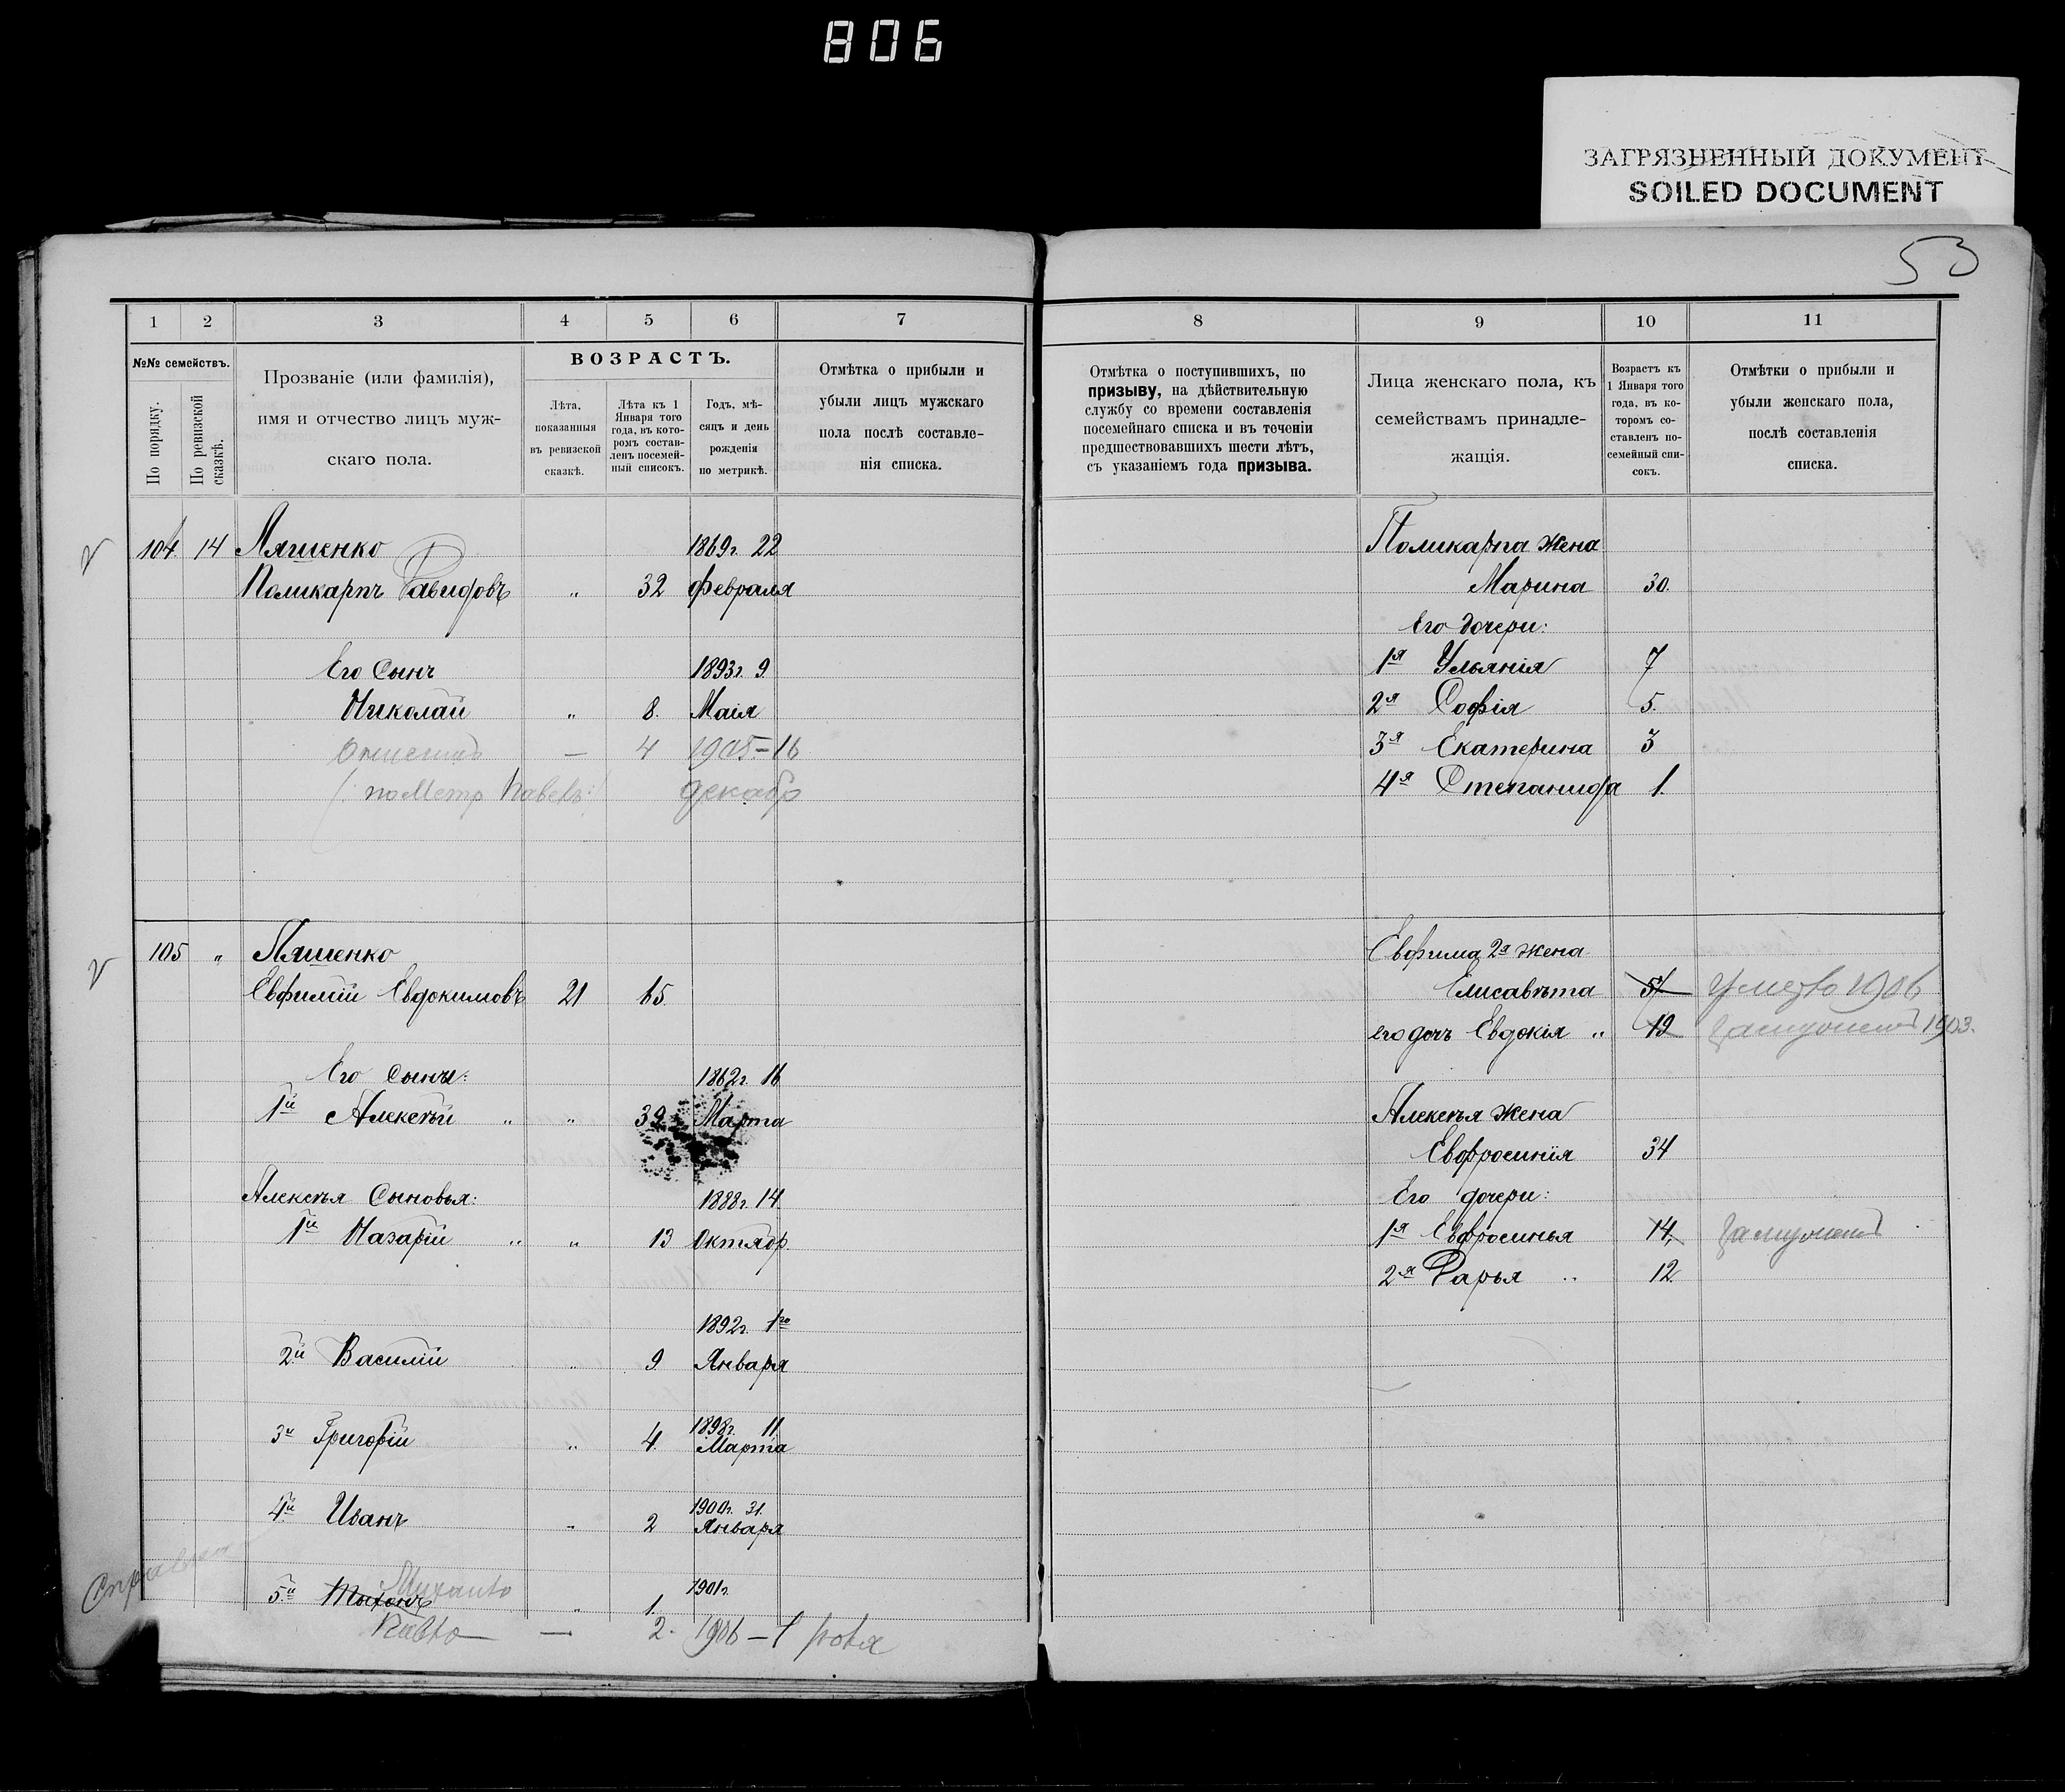 806
ЗАГРЯЗНЕННЫЙ ДОКУМЕНТ
SOILED DOCUMENT
53
1 2 3 4 5 6 7
№№ семействъ.
По порядку.
По ревизской сказкѣ.
Прозваніе (или фамилія),
имя и отчество лицъ муж-
скаго пола.
ВОЗРАСТЪ.
Лѣта,
показанныя
въ ревизской
сказкѣ.
Лѣта къ 1
Января того
года, въ кото-
ромъ состав-
ленъ посемей-
ный списокъ.
Годъ, мѣ-
сяцъ и день
рожденія
по метрикѣ.
Отмѣтка о прибыли и
убыли лицъ мужскаго
пола послѣ составле-
нія списка.
104. 14 Ляшенко 1869г. 22
Поликарпъ Давидовъ " 32 Февраля
Его Сынъ 1893г. 9
Николай " 8. Маія
— 4 1905.–16
(: по Метр Павелъ:) декабр
105 " Ляшенко
Евфимій Евдокимовъ 21 65.
Его Сыны: 1862г. 16
1й Алексѣй " " 39 Марта
Алексѣя Сыновья: 1888г. 14
1й Назарій " " 13 Октябр.
1892г. 1го
2й Василій " 9 Января
3й Григорій " 4. 1898г. 11 Марта
4й Иванъ " 2 1900г. 31. Января
5й Тихонъ " 1. 1901г.
— 2. 1906 – 1
8 9 10 11
Отмѣтка о поступившихъ, по
призыву, на дѣйствительную
службу со времени составленія
посемейнаго списка и въ теченіи
предшествовавшихъ шести лѣтъ,
съ указаніемъ года призыва.
Лица женскаго пола, къ
семействамъ принадле-
жащія.
Возрастъ къ
1 Января того
года, въ ко-
торомъ со-
ставленъ по-
семейный спи-
сокъ.
Отмѣтки о прибыли и
убыли женскаго пола,
послѣ составленія
списка.
Поликарпа Жена
Марина 30.
Его дочери:
1я Ульянія 7
2я Софія 5.
3я Екатерина 3
4я Степанида 1.
Евфима 2я жена
Елисавѣта 51 1906
его дочь Евдокія " 19 1903.
Алексѣя Жена
Евфросинія 34
Его дочери:
1я Евфросинья 14,
2я Дарья " 12